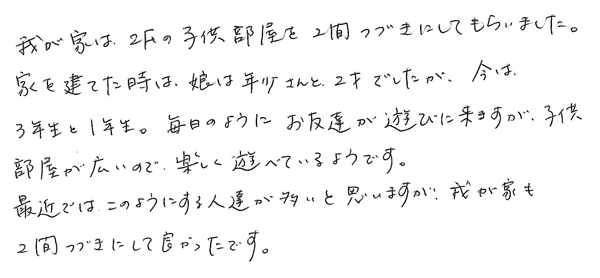 我が家は、2Fの子供部屋を2間つづきにしてもらいました。
家を建てた時は、娘は年少さんと、2才でしたが、今は、
3年生と1年生。毎日のようにお友達が遊びに来ますが、子供
部屋が広いので、楽しく遊べているようです。
最近では、このようにする人達が多いと思いますが、我が家も
2間つづきにして良かったです。